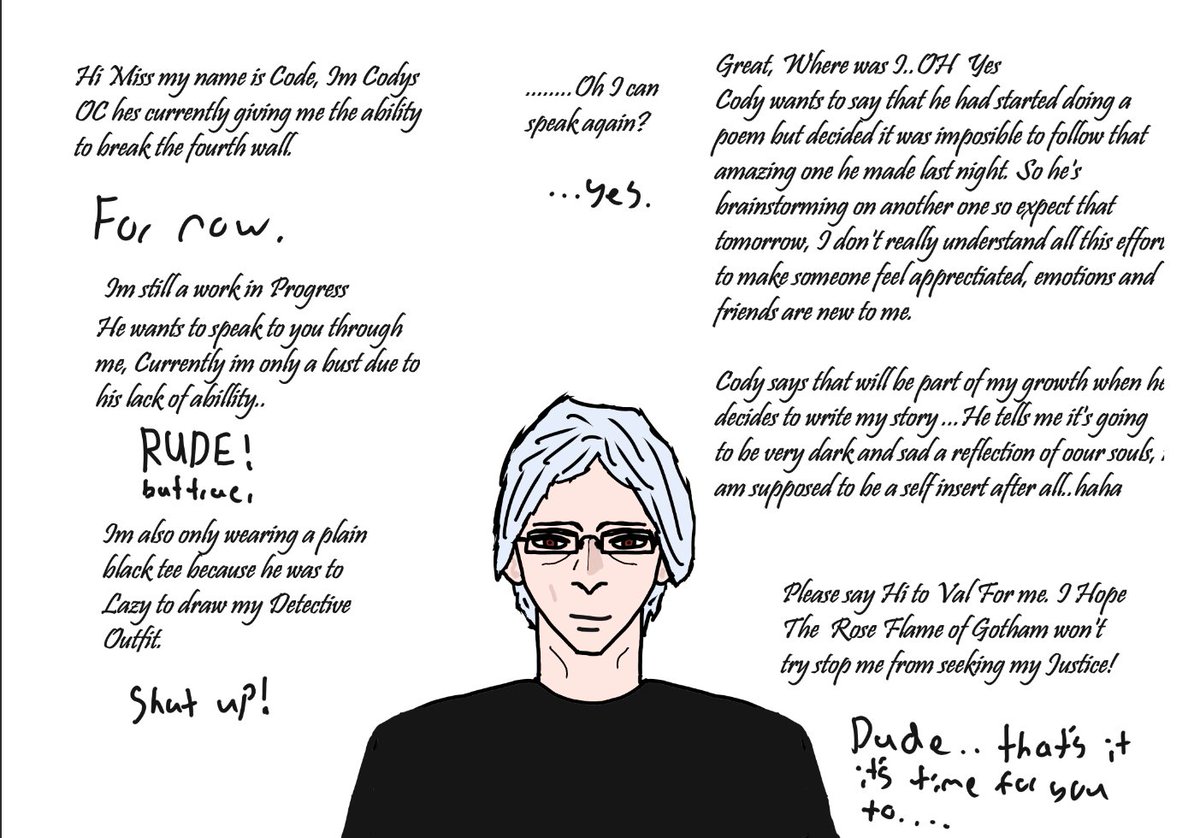 Hi Miss my name is Code, Im Codys
OC hes currently giving me the ability
to break the fourth wall.
For now.
Im still a work in Progress
He wants to speak to you through
me, Currently im only a bust due to
his lack of abillity..
RUDE!
but true.
Im also only wearing a plain
black tee because he was to
Lazy to draw my Detective
Outfit.
Shut up!
........Oh I can
speak again?
...yes.
Great, Where was I..OH Yes
Cody wants to say that he had started doing a
poem but decided it was imposible to follow that
amazing one he made last night. So he's
brainstorming on another one so expect that
tomorrow, I don't really understand all this effort
to make someone feel apprectiated, emotions and
friends are new to me.
Cody says that will be part of my growth when he
decides to write my story ... He tells me it's going
to be very dark and sad a reflection of oour souls,
am supposed to be a self insert after all..haha
Please say Hi to Val For me. I Hope
The Rose Flame of Gotham won't
try stop me from seeking my Justice!
Dude.. that's it
it's time for you
to....